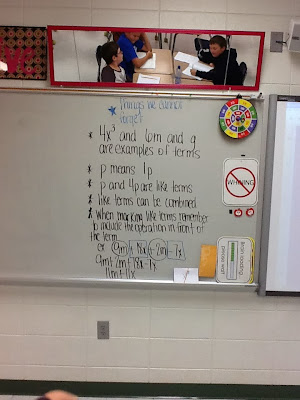 things we cannot
forget
* 4x³ and 6m and 9
are examples of terms
* p means 1p
* p and 4p are like terms
* like terms can be combined
* when marking like terms remember
to include the operation in front of
the term
9m + 18x + 2m - 7x
9m+2m+18x-7x
11m+11x
WHINING